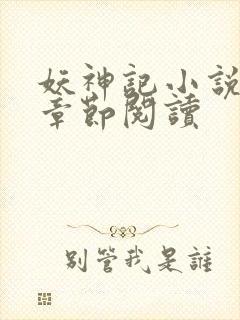 妖神記小說
章節閱讀
別管我是誰